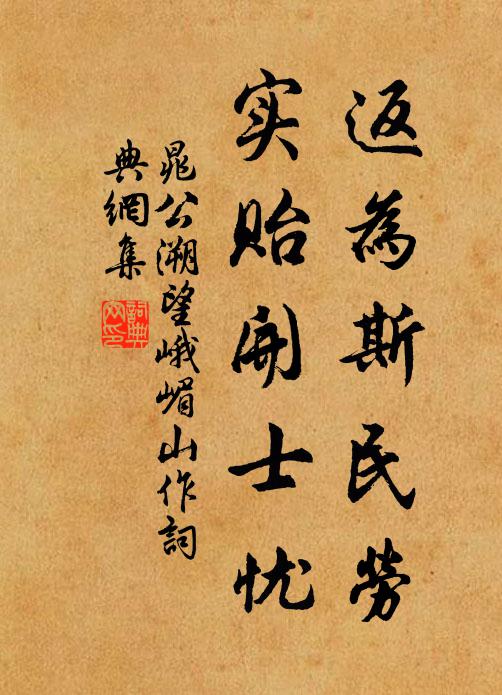 返為斯民勞
实贻開士忧
晁公溯望峨嵋山作詞
典網集
詞典
网印